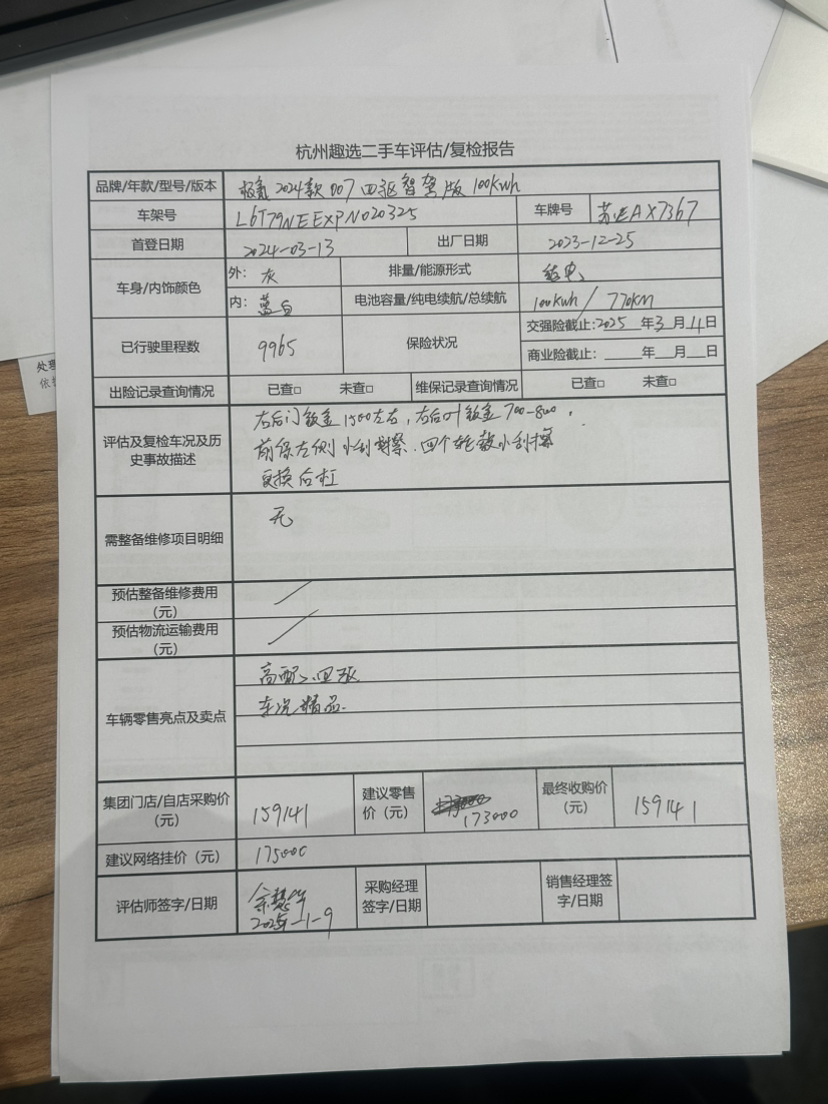 杭州趣选二手车评估/复检报告
品牌/年款/型号/版本 极氪2024款007四驱智驾版100Kwh
车架号 L6T79NEEXPN020325 车牌号 苏EAX7367
首登日期 2024-03-13 出厂日期 2023-12-25
车身/内饰颜色 外: 灰 排量/能源形式 纯电
内: 蓝白 电池容量/纯电续航/总续航 100kwh / 770KM
已行驶里程数 9965 保险状况 交强险截止:2025年3月11日
商业险截止: 年 月 日
出险记录查询情况 已查□ 未查□ 维保记录查询情况 已查□ 未查□
评估及复检车况及历
史事故描述
右后门钣金1500左右,右后叶钣金700-800,
前保左侧小刮擦.四个轮毂小刮擦
更换后杠
需整备维修项目明细 无
预估整备维修费用
(元)
预估物流运输费用
(元)
车辆零售亮点及卖点
高配、四驱
车况精品.
集团门店/自店采购价
(元)
159141
建议零售
价(元)
173000
最终收购价
(元)
159141
建议网络挂价(元) 175000
评估师签字/日期
2025-1-9
采购经理
签字/日期
销售经理签
字/日期
处理